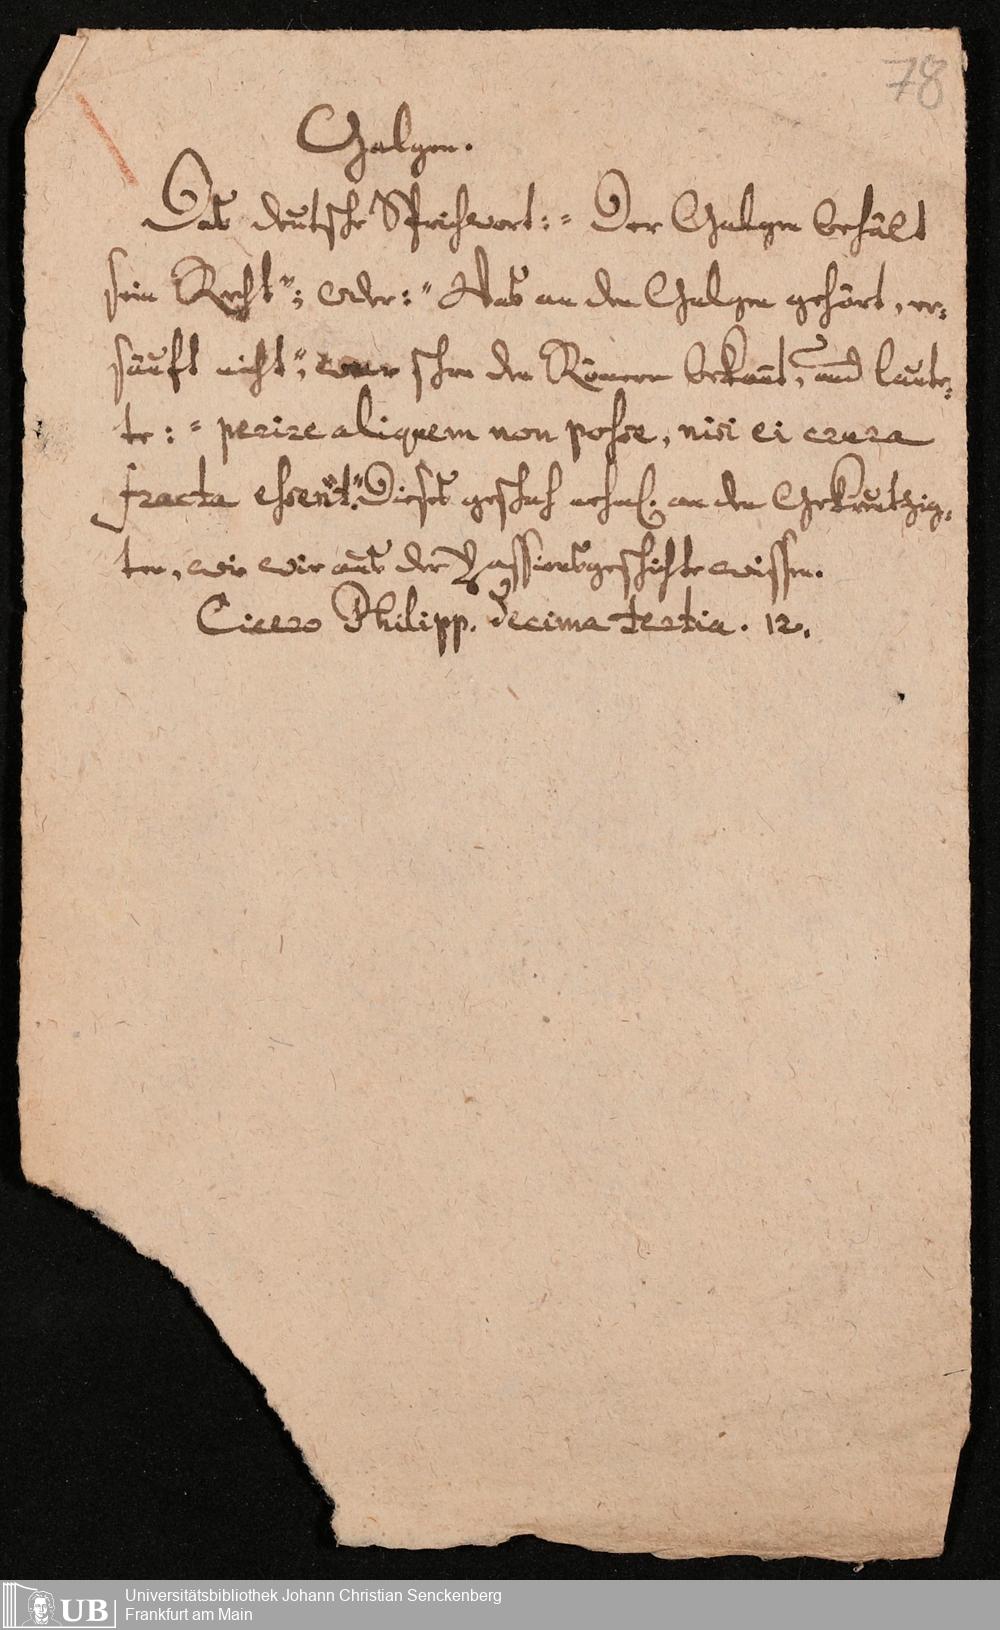 78
Galgen.
Das deutsche Sprichwort: „Der Galgen behält
sein Recht“; oder: „Was an den Galgen gehört, er-
säuft nicht“, war schon den Römern bekannt, und laute-
te: „perire aliquem non posse, nisi ei crura
fracta essent.“ Dieses geschah nehml. an den Gekreutzig-
ten, wie wir aus der Passionsgeschichte wissen.
Cicero Philipp. decima tertia. 12.
Universitätsbibliothek Johann Christian Senckenberg
Frankfurt am Main
UB